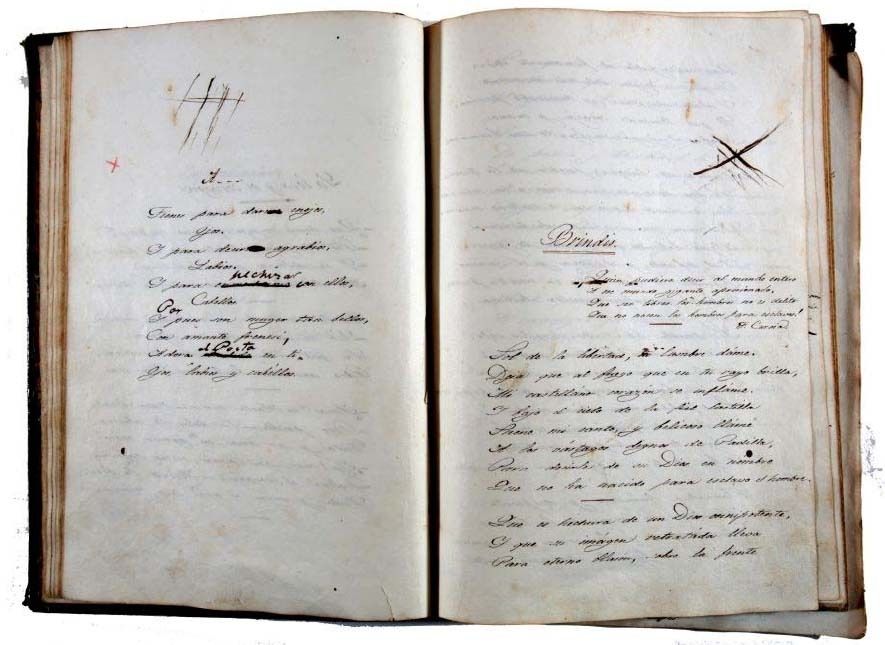 A...
Tienes para dar enojos,
Ojos.
Y para decir agrabios,
Labios,
Y para hechizar con ellos,
Cabellos
Por
Y pues son muger tan bellos,
Con amante frenesi,
Adora el Poeta en ti
Ojos, labios y cabellos.
Brindis.
Quien pudiera decir al mundo entero
Y en musa gigante aprisionado,
Que ser libres los hombres no es delito
Que no nacen los hombres para esclavos!
Sol de la libertad, tu lumbre dáme.
Deja que al fuego que en tu rayo brilla,
Mi castellano corazón se inflame.
Y bajo el cielo de la fiel Castilla
Suene mi canto, y belicoso llame
A los vástagos dignos de Padilla,
Para decirles de su Dios en nombre
Que no ha nacido para esclavo el hombre.
Que es hechura de un Dios omnipotente,
Y que su imagen retratada lleva
Para eterno blason, sobre la frente